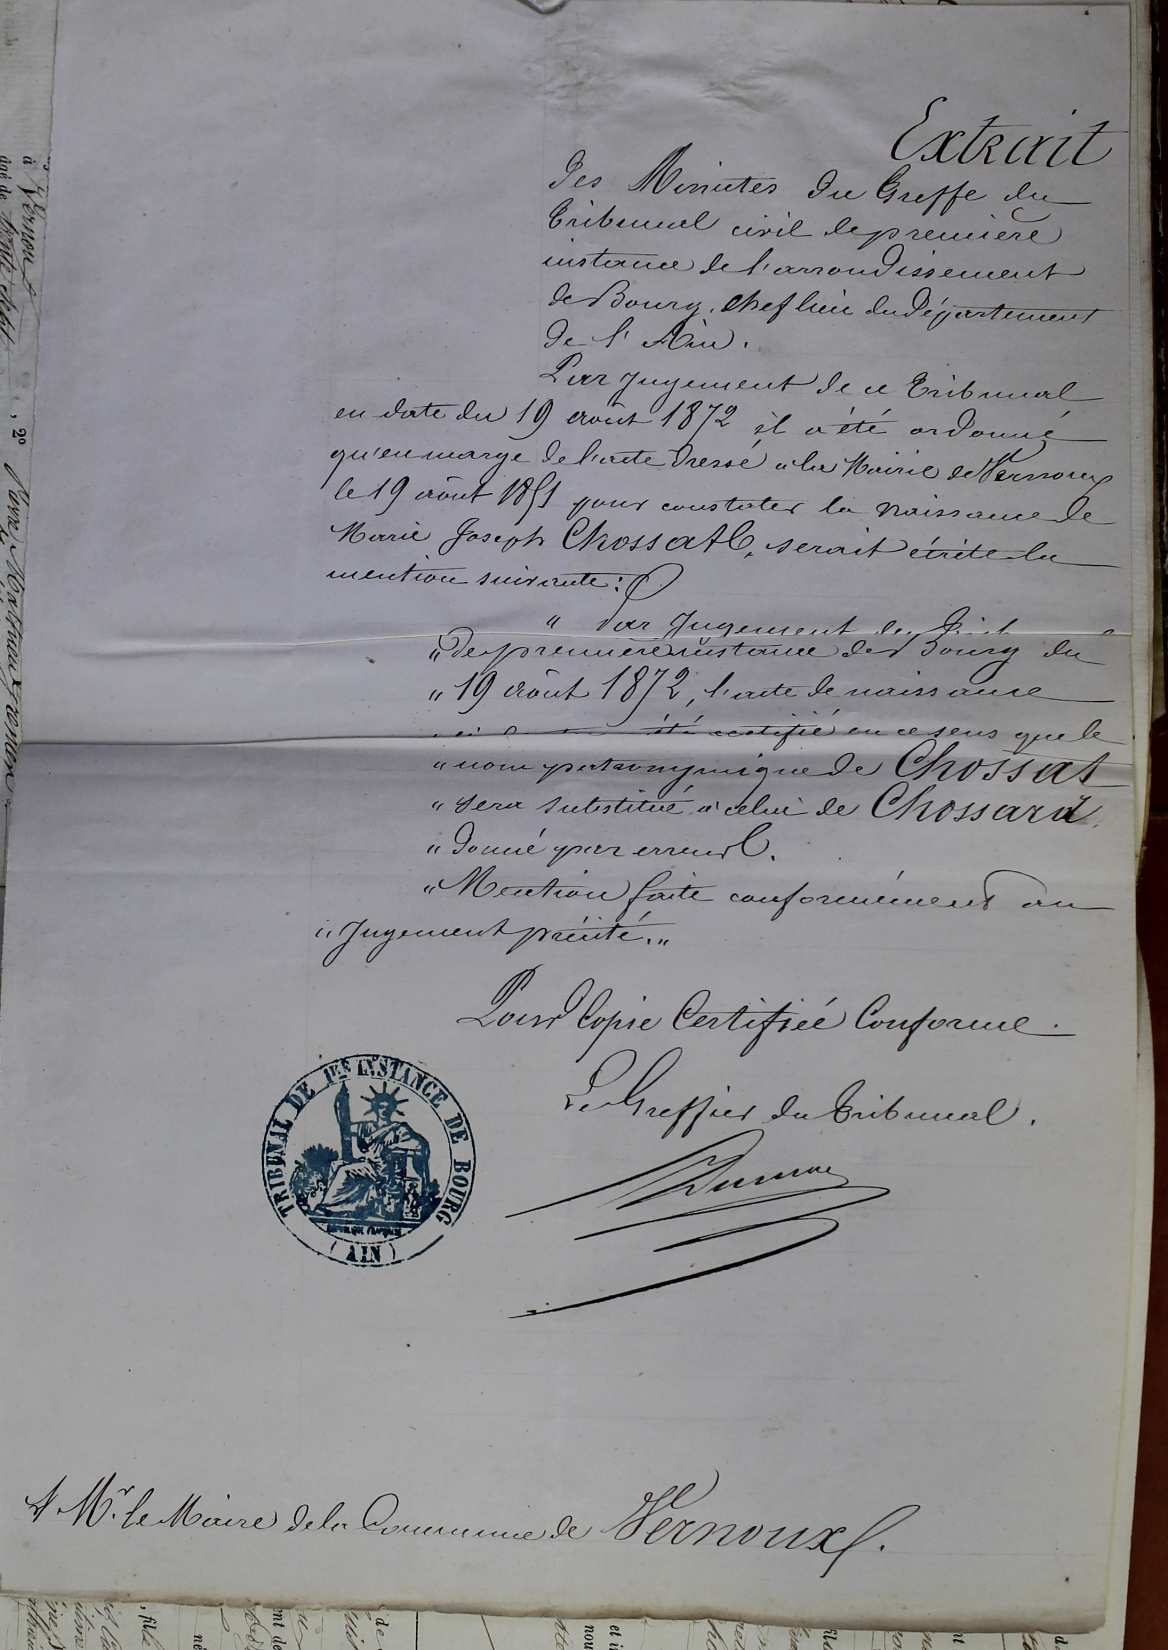 Extrait
des Minutes du Greffe du
Tribunal civil de première
instance de l'arrondissement
de Bourg, chef lieu du Département
de l'Ain.
Par Jugement de ce Tribunal
en date du 19 août 1872 il a été ordonné
qu'en marge de l'acte dressé à la Mairie de Vernoux
le 19 août 1851 pour constater la naissance de
Marie Joseph Chossat, serait écrite la
mention suivante:
" Par Jugement du
" de première instance de Bourg du
" 19 août 1872, l'acte de naissance
été rectifié en ce sens que le
" nom patronymique de Chossat
" sera substitué à celui de Chossard
" donné par erreur.
" Mention faite conformément au
" Jugement précité. "
Pour Copie Certifiée Conforme.
Le Greffier du Tribunal.
TRIBUNAL DE 1RE INSTANCE DE BOURG
(AIN)
A Mr. le Maire de la Commune de Vernoux.
à Vernoux
âgé de
, 2º